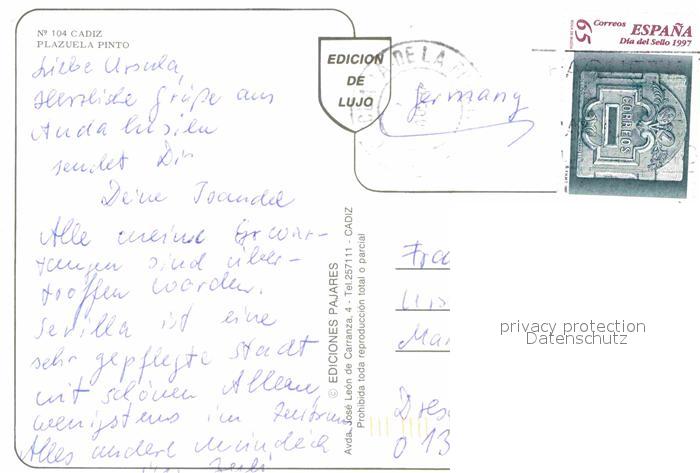 Nº 104 CADIZ
PLAZUELA PINTO
Liebe Ursula,
Herzliche Grüße aus
Andalusien
sendet Dir
Deine Joanda
Alle meine Erwar-
tungen sind über-
troffen worden.
Sevilla ist eine
sehr gepflegte Stadt
mit schönen Alleen,
wenigstens im Zentrum
Alles andere mündlich
EDICION
DE
LUJO
Germany
65
Correos
ESPAÑA
Día del Sello 1997
CORREOS
DE LA
© EDICIONES PAJARES
Avda. José León de Carranza, 4 - Tel.257111 - CADIZ
Prohibida toda reproducción total o parcial
Fra
Urs
Mar
Dres
0 13
privacy protection
Datenschutz